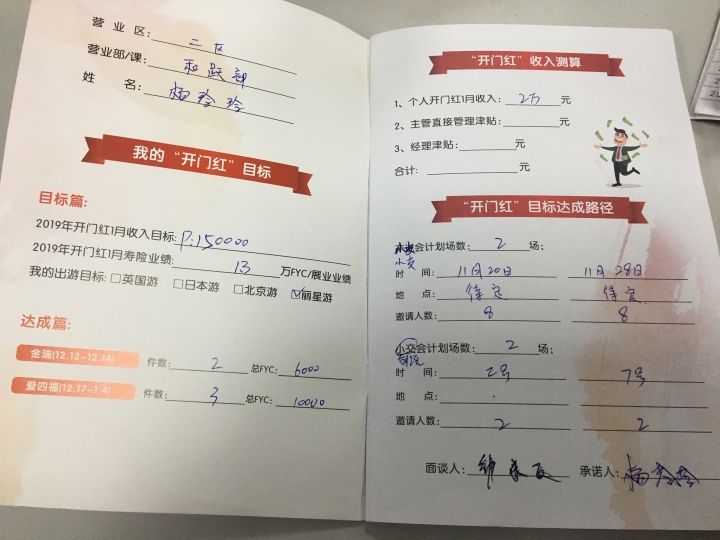 营 业 区: 二区
营业部/课: 和跃部
姓 名: 杨玲玲
我的“开门红”目标
目标篇:
2019年开门红1月收入目标: P:150000
2019年开门红1月寿险业绩: 13 万FYC/展业业绩
我的出游目标: □英国游 □日本游 □北京游 ☑丽星游
达成篇:
金瑞(12.12-12.14) 件数: 2 总FYC: 6000
爱四福(12.17-1.4) 件数: 3 总FYC: 10000
“开门红”收入测算
1、个人开门红1月收入: 2万 元
2、主管直接管理津贴: 元
3、经理津贴: 元
合计: 元
“开门红”目标达成路径
会计划场数: 2 场;
小交
时 间: 11月20日 11月28日
地 点: 待定 待定
邀请人数: 8 8
小交会计划场数: 2 场;
时 间: 2号 7号
地 点:
邀请人数: 2 2
面谈人: 承诺人: 杨玲玲